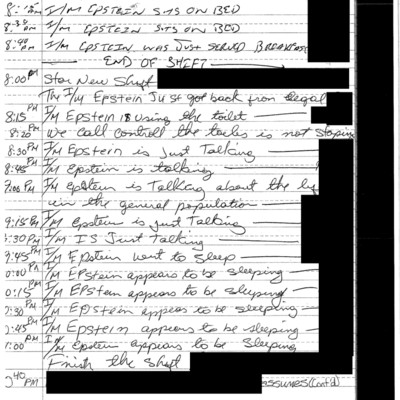 8:15AM I/M EPSTEIN SITS ON BED
8:30AM I/M EPSTEIN SITS ON BED
8:40AM I/M EPSTEIN WAS JUST SERVED BREAKFAST
END OF SHIFT
8:00PM Star New Shift
The I/M Epstein Just got back from legal
8:15PM I/M Epstein is using the toilet
8:20PM we call controll the toilet is not stoping
8:30PM I/M Epstein is Just Talking
8:45PM I/M Epstein is talking
9:00PM I/M epstein is Talking about the
in the general population
9:15PM I/M Epstein is just Talking
9:30PM I/M IS Just talking
9:45PM I/M Epstein went to Sleep
0:00PM I/M EPstein appears to be sleeping
0:15PM I/M EPStein appears to be sleeping
0:30PM I/M EPStein appears to be sleeping
0:45PM I/M Epstein appears to be sleeping
1:00PM I/M Epstein appears to be Sleeping
Finish the Shift
0:40 PM assumes (Cont'd)